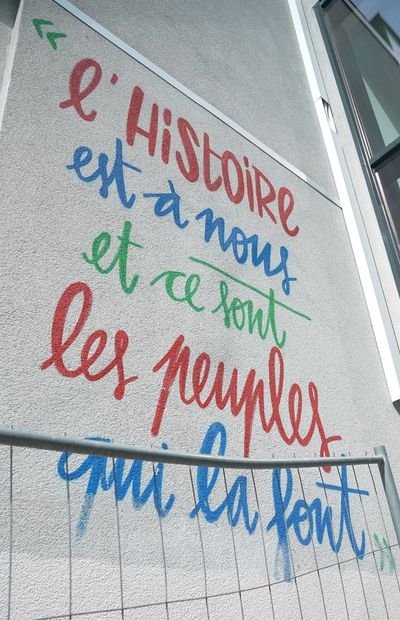 « l'Histoire
est à nous
et ce sont
les peuples
qui la font »